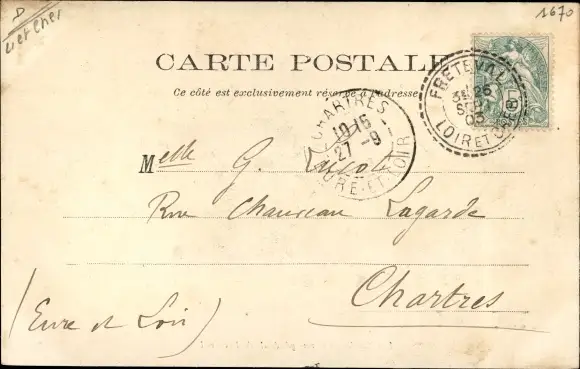 1670
CARTE POSTALE
Ce côté est exclusivement réservé à l'adresse
FRETEVAL
26
SEPT
LOIR ET CHER
CHARTRES
10 15
27 - 9
EURE-ET-LOIR
Melle G.
Rue Chauveau Lagarde
Chartres
(Eure et Loir)